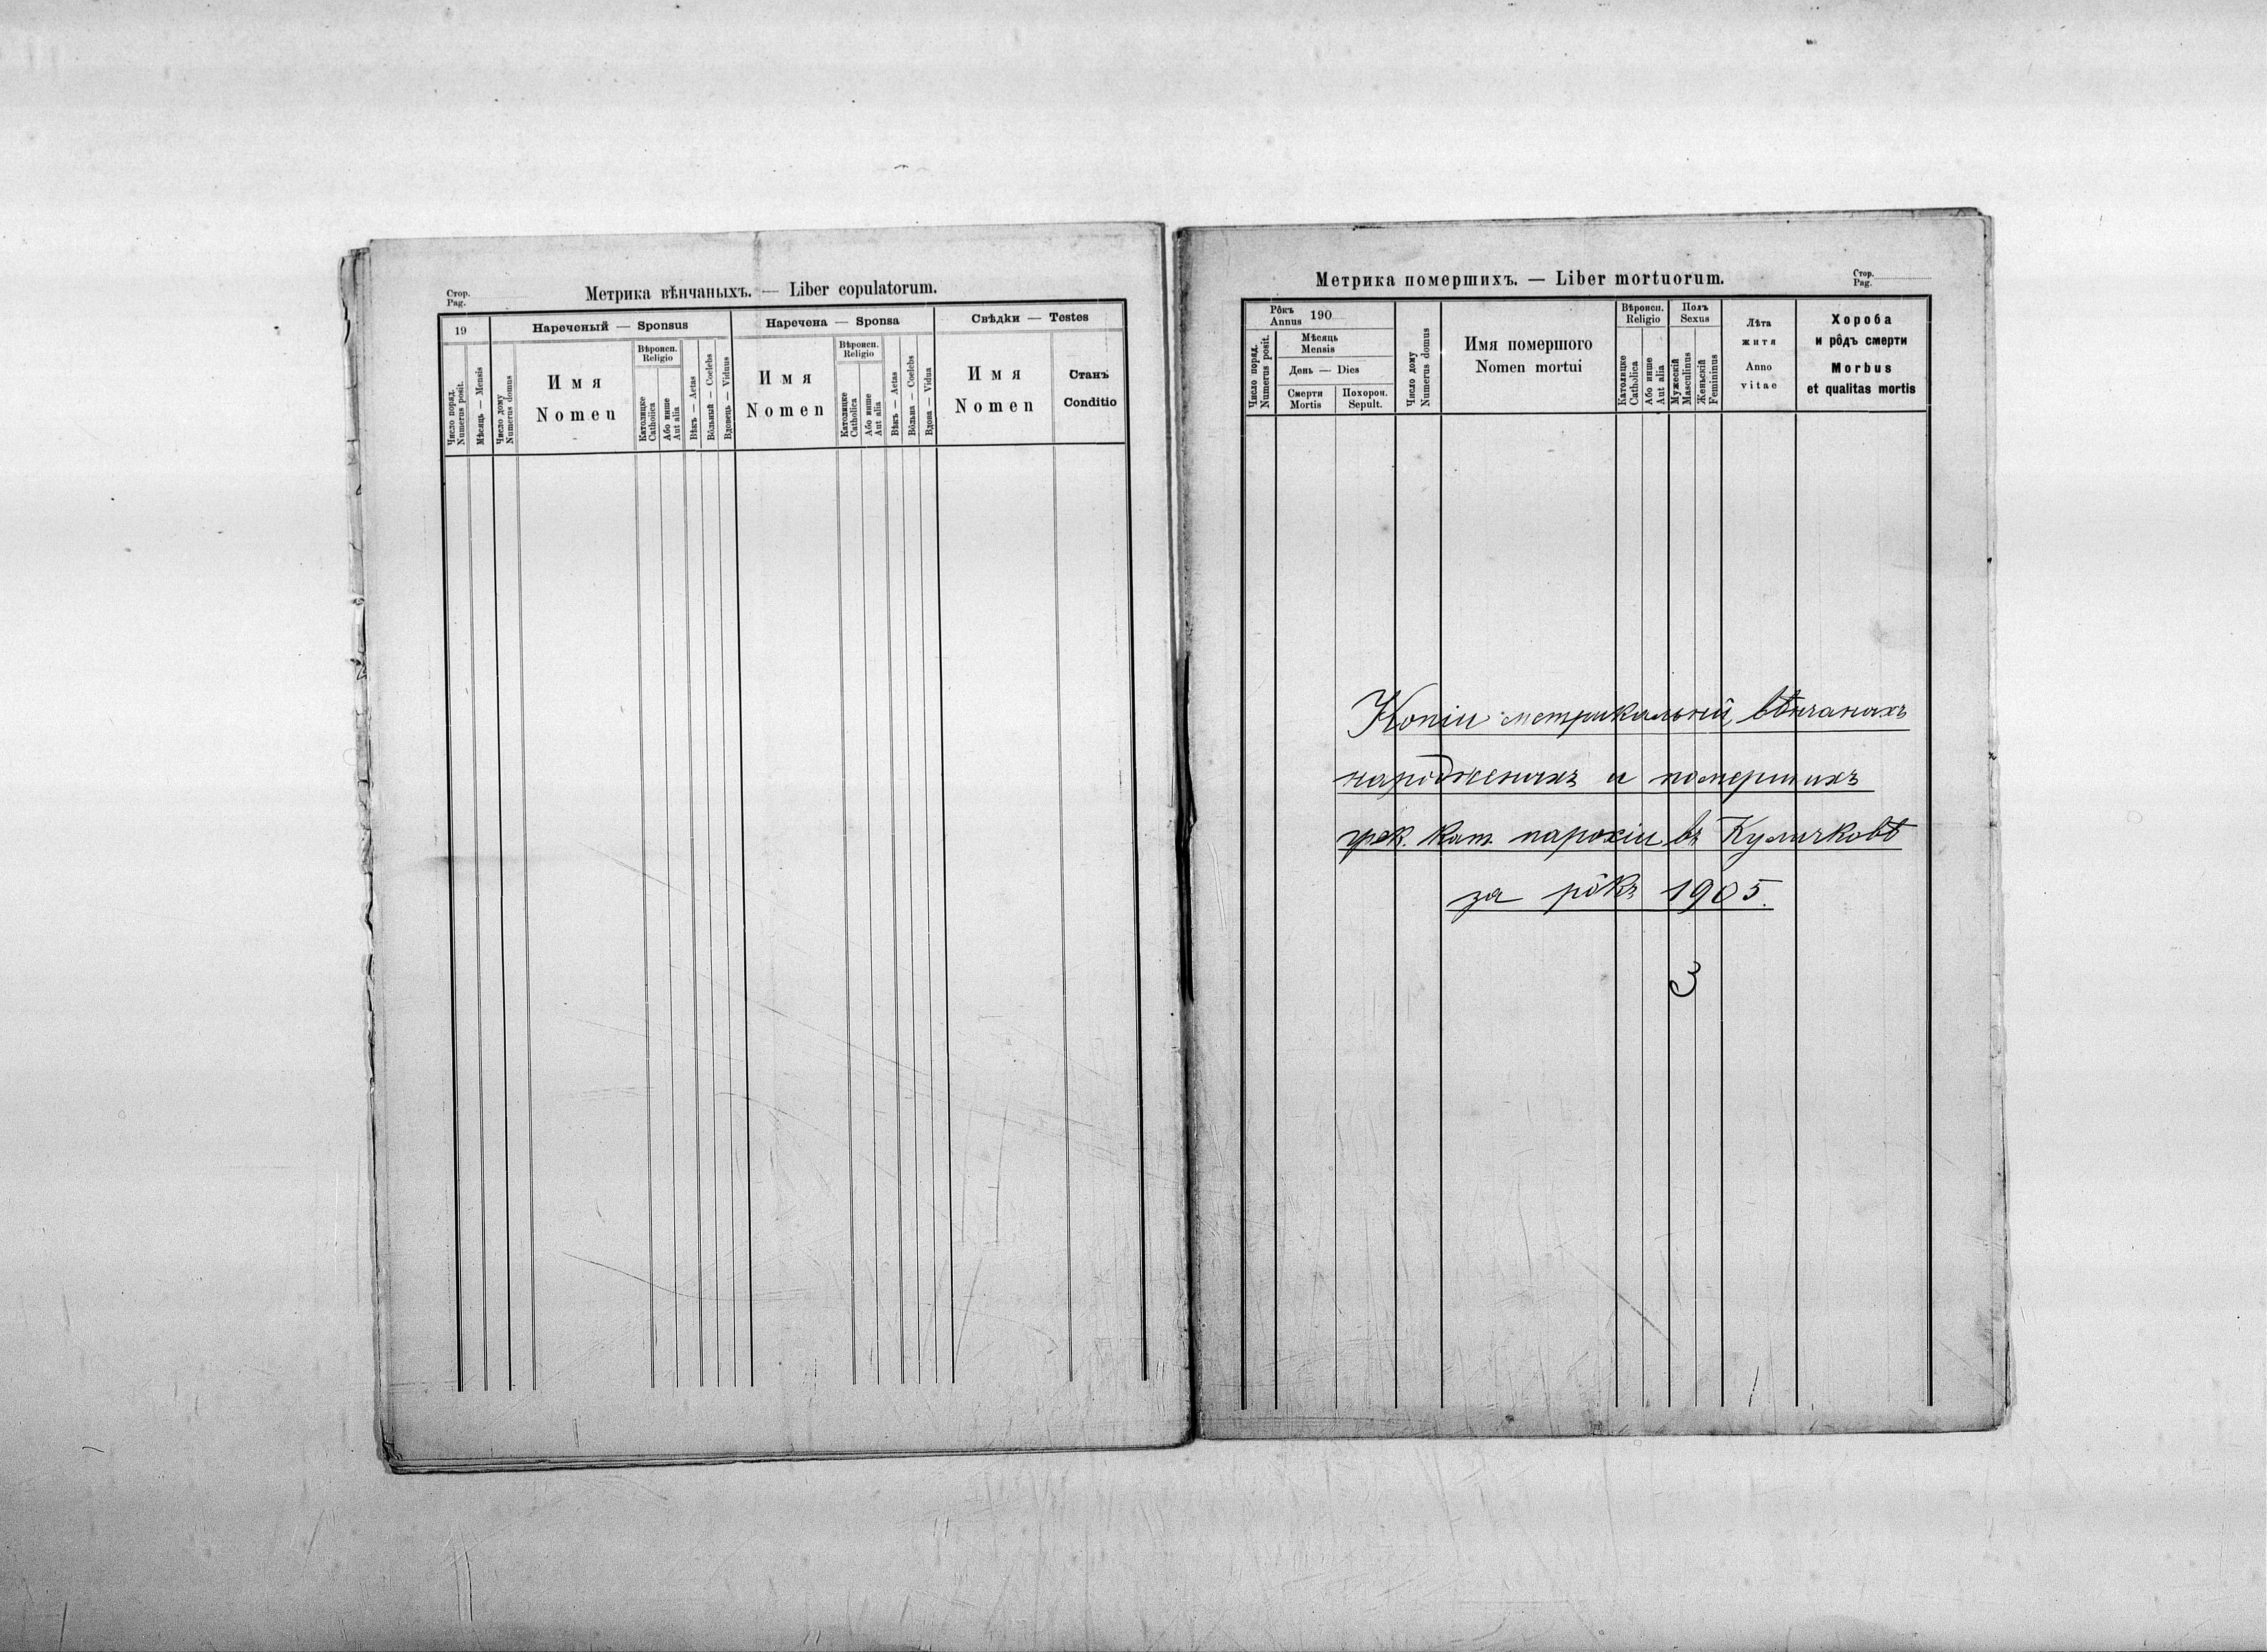 Стор.
Pag.
Метрика вѣнчаныхъ. — Liber copulatorum.
19
Нареченый — Sponsus
Наречена — Sponsa
Свѣдки — Testes
Число поряд.
Numerus posit.
Мѣсяць — Mensis
Число дому
Numerus domus
Имя
Nomen
Вѣроисп.
Religio
Католицке
Catholica
Або инше
Aut alia
Вѣкъ — Aetas
Вôльный — Coelebs
Вдовець — Viduus
Имя
Nomen
Вѣроисп.
Religio
Католицке
Catholica
Або инше
Aut alia
Вѣкъ — Aetas
Вôльна — Coelebs
Вдова — Vidua
Имя
Nomen
Станъ
Conditio
Метрика помершихъ. — Liber mortuorum.
Стор.
Pag.
Рôкъ
Annus 190
Число поряд.
Numerus posit.
Мѣсяць
Mensis
День — Dies
Смерти
Mortis
Похорон.
Sepult.
Число дому
Numerus domus
Имя помершого
Nomen mortui
Вѣроисп.
Religio
Католицке
Catholica
Або инше
Aut alia
Полъ
Sexus
Мужескій
Masculinus
Женьскій
Femininus
Лѣта
житя
Anno
vitae
Хороба
и рôдъ смерти
Morbus
et qualitas mortis
Копіи метрикальнiи вѣнчаныхъ
народженыхъ и помершихъ
грек. кат. парохіи въ Куличковѣ
за рôкъ 1905.